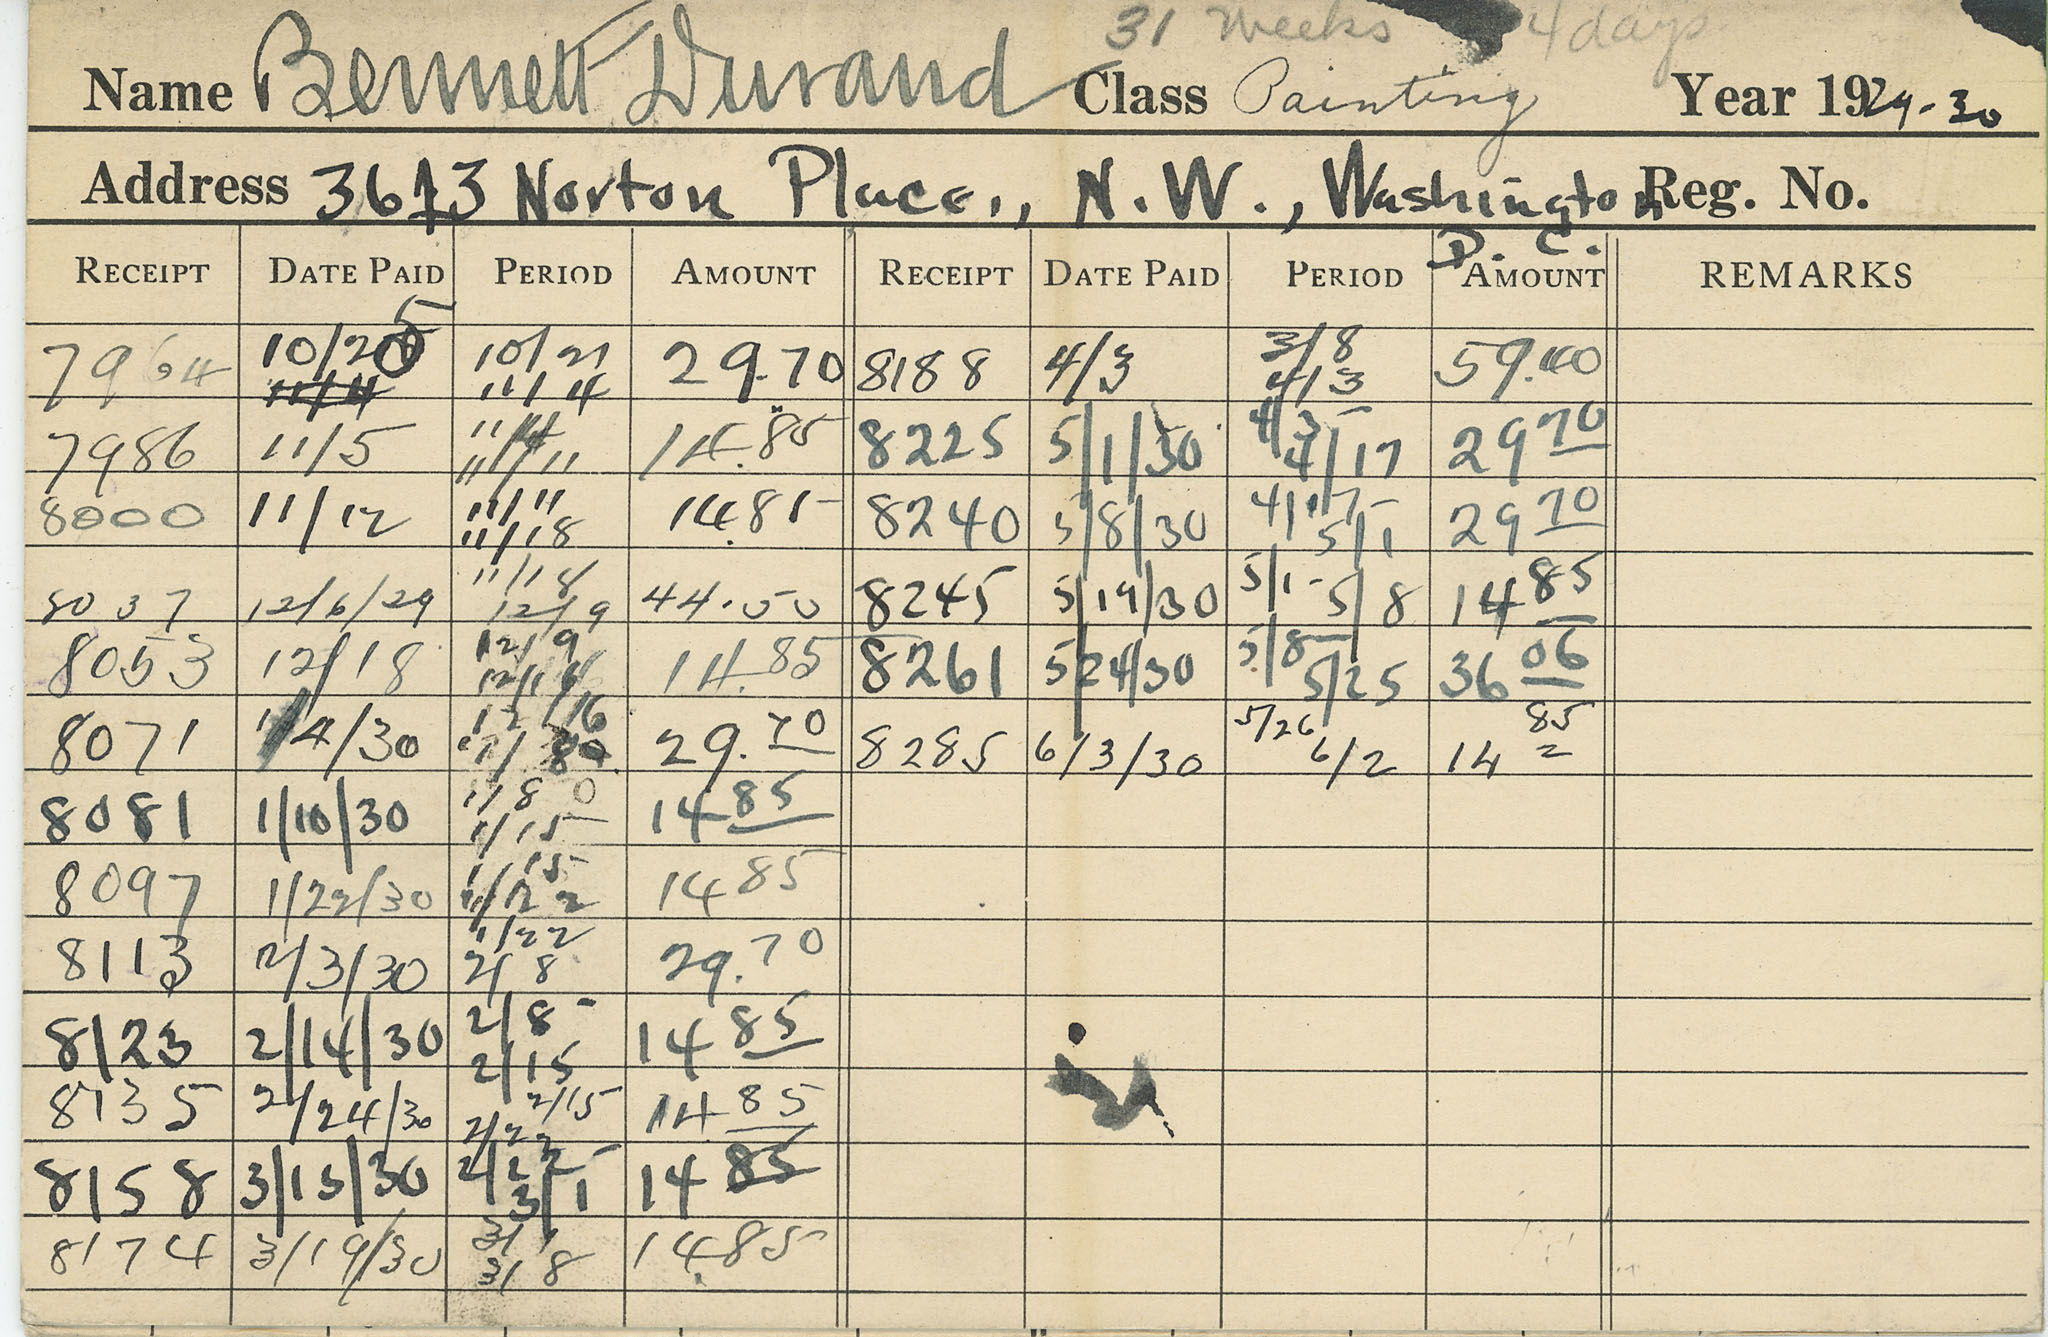 31 Weeks 4 days
Name Bennett Durand Class Painting Year 1929-30
Address 3613 Norton Place., N.W., Washington Reg. No.
D. C.
RECEIPT DATE PAID PERIOD AMOUNT RECEIPT DATE PAID PERIOD AMOUNT REMARKS
7964 10/25 10/21 11/4 29.70 8188 4/3 3/8 4/3 59.40
7986 11/5 11/4 11/11 14.85 8225 5/1/30 4/3- 4/17 29 70
8000 11/12 11/11 11/18 14.85 8240 5/8/30 4/17- 5/1 29 70
8037 12/6/29 11/18 12/9 44.50 8245 5/19/30 5/1- 5/8 14 85
8053 12/18 12/9 12/16 14.85 8261 5/24/30 5/8- 5/25 36 06
8071 1/4/30 12/16 29.70 8285 6/3/30 5/26 6/2 14 85
8081 1/10/30 1/8 1/15 14 85
8097 1/22/30 1/15 1/22 14 85
8113 2/3/30 1/22 2/8 29.70
8123 2/14/30 2/8- 2/15 14 85
8135 2/24/30 2/15 2/22 14 85
8158 3/13/30 2/22- 3/1 14 85
8174 3/19/30 3/1 3/8 14.85